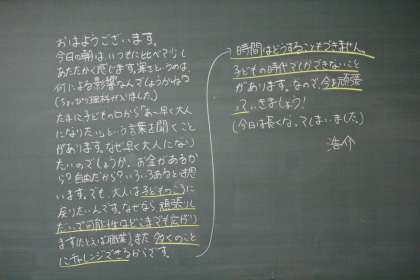 おはようございます。
今日の朝は、いつもに比べて少し
あたたかく感じます。寒さというのは
何による影響なんでしょうかね?
(ちょっぴり理科が入りました。)
たまに子どもの口から「あー早く大人
になりたい」という言葉を聞くこと
があります。なぜ早く大人になり
たいのでしょうか。お金があるか
ら?自由だから?いろいろあるとは思
います。でも、大人は子どものころに
戻りたいんです。なぜなら、頑張りし
だいで可能性はどこまでも広がり
ます(たとえば職業)。また、多くのこと
にチャレンジできるからです。
時間はどうすることもできません。
子どもの時代でしかできないこと
があります。なので、今を頑張
っていきましょう!
(今日は長くなってしまいました。)
浩介